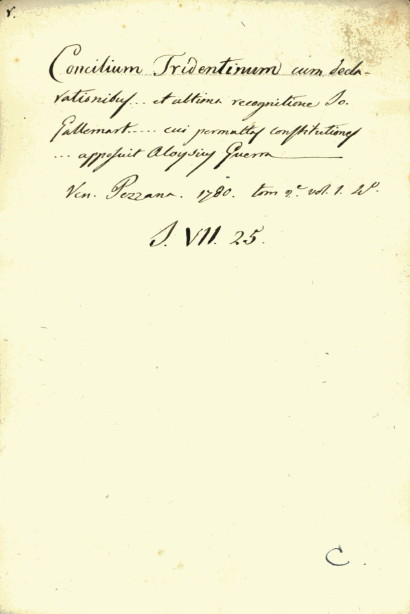 v.
Concilium Tridentinum cum decla-
rationibus... et ultima recognitione Jo.
Gallemart..... cui permultas constitutiones
... apposuit Aloysius Guerra
Ven. Pezzana. 1780. tom 2.º vol. 1. 4º.
J. VII. 25.
C.